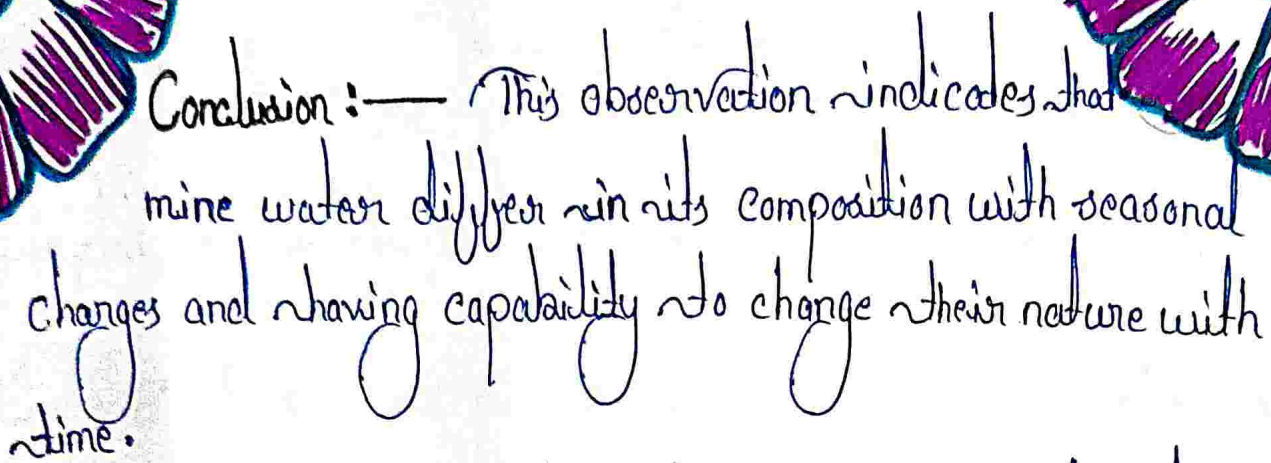 Conclusion :— This observation indicates that
mine water differ in its composition with seasonal
changes and having capability to change their nature with
time.